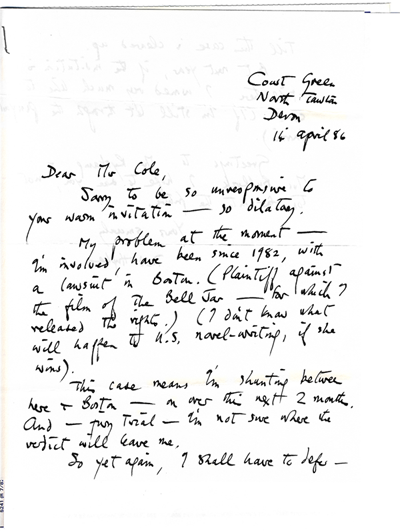 Court Green
North Tawton
Devon
16 April 86
Dear Mr Cole,
Sorry to be so unresponsive to
your warm invitation — so dilatory.
My problem at the moment —
I'm involved, have been since 1982, with
a lawsuit in Boston. (Plaintiff against
the film of The Bell Jar — for which I
released the rights.) (I don't know what
will happen to U.S. novel-writing, if she
wins).
This case means I'm shunting between
here + Boston — on over the next 2 months.
And — jury trial — I'm not sure where the
verdict will leave me.
So yet again, I shall have to defer —